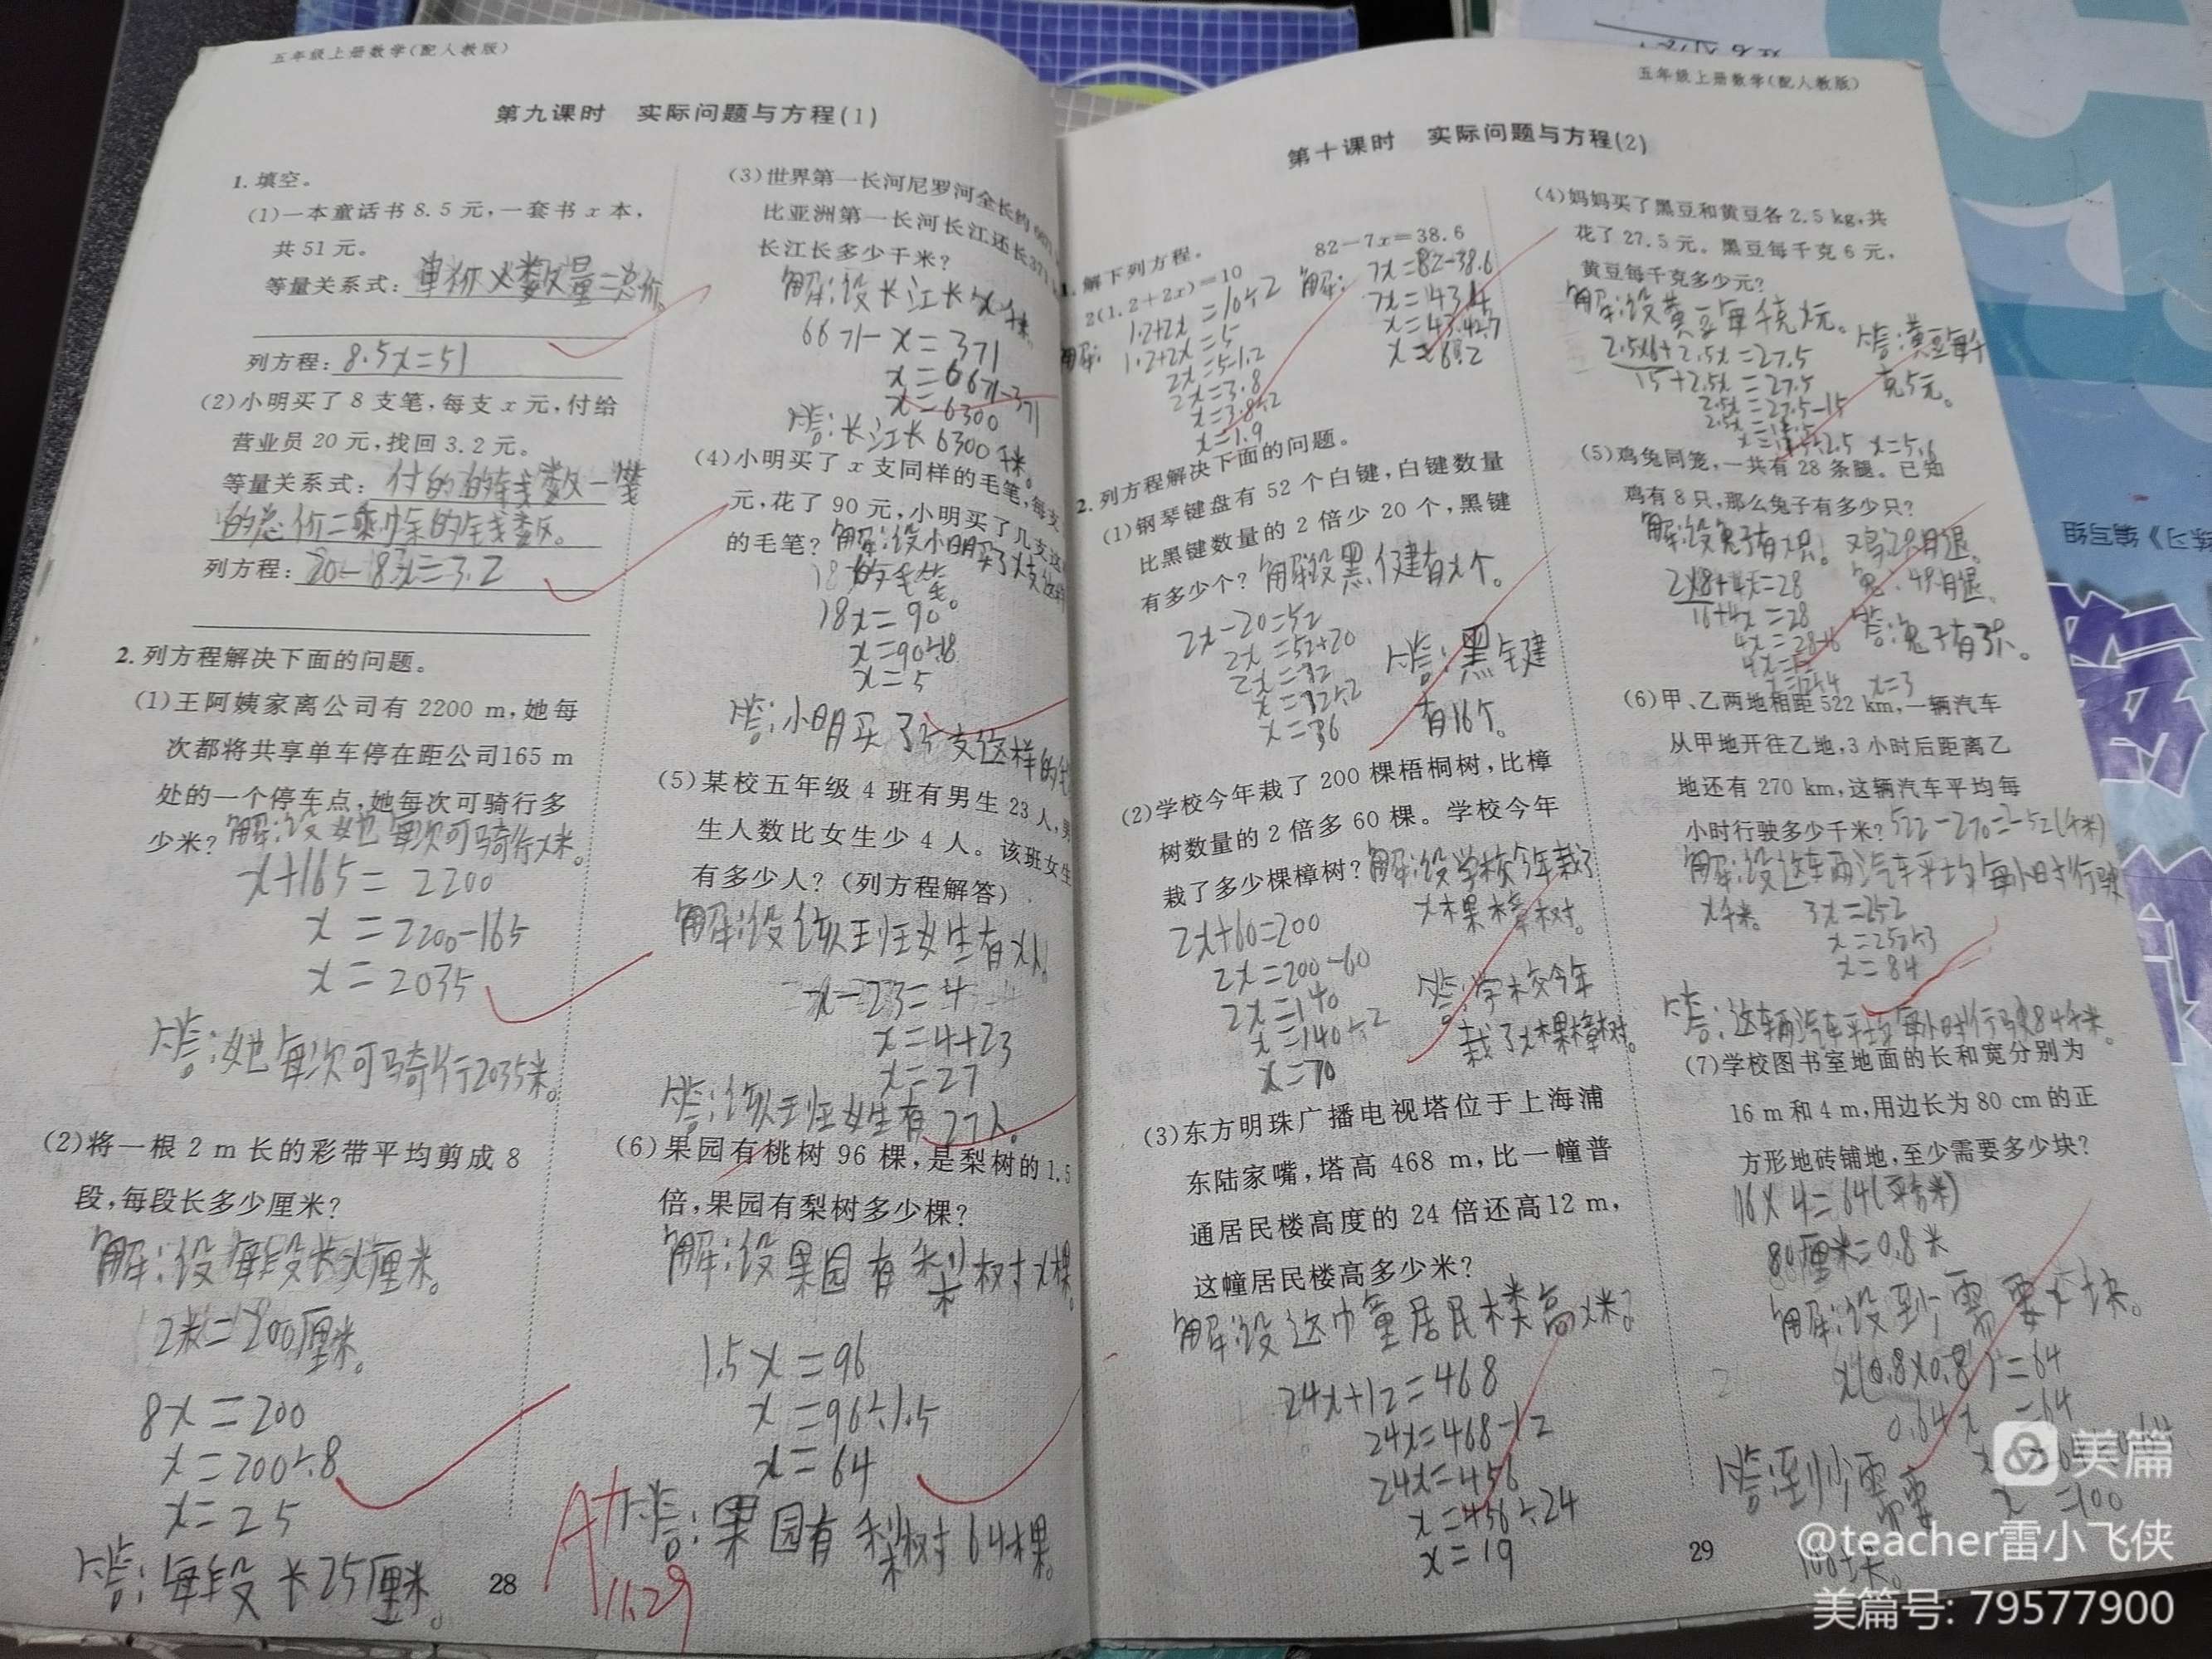 五年级上册数学(配人教版)
第九课时 实际问题与方程(1)
1. 填空。
(1)一本童话书8.5元,一套书x本,
共51元。
等量关系式:单价×数量=总价
列方程:8.5x=51
(2)小明买了8支笔,每支x元,付给
营业员20元,找回3.2元。
等量关系式:付的的钱数-笔
的总价=剩余的钱数。
列方程:20-8x=3.2
2. 列方程解决下面的问题。
(1)王阿姨家离公司有2200 m,她每
次都将共享单车停在距公司165 m
处的一个停车点,她每次可骑行多
少米?解:设她每次可骑行x米。
x+165=2200
x=2200-165
x=2035
答:她每次可骑行2035米。
(2)将一根2 m长的彩带平均剪成8
段,每段长多少厘米?
解:设每段长x厘米。
2米=200厘米。
8x=200
x=200÷8
x=25
答:每段长25厘米。
28
(3)世界第一长河尼罗河全长约
比亚洲第一长河长江还长371
长江长多少千米?
解:设长江长x千米。
6671-x=371
x=6671-371
x=6300
答:长江长6300千米。
(4)小明买了x支同样的毛笔,每支
元,花了90元,小明买了几支这
的毛笔?解:设小明买了x支这样
的毛笔。
18x=90
x=90÷18
x=5
答:小明买了5支这样的
(5)某校五年级4班有男生23人,男
生人数比女生少4人。该班女生
有多少人?(列方程解答)
解:设该班女生有x人。
x-23=4
x=4+23
x=27
答:该班女生有27人。
(6)果园有桃树96棵,是梨树的1.5
倍,果园有梨树多少棵?
解:设果园有梨树x棵。
1.5x=96
x=96÷1.5
x=64
答:果园有梨树64棵。
A+
11.29
五年级上册数学(配人教版)
第十课时 实际问题与方程(2)
1. 解下列方程。
2(1.2+2x)=10
解: 1.2+2x=10÷2
1.2+2x=5
2x=5-1.2
2x=3.8
x=3.8÷2
x=1.9
82-7x=38.6
解: 7x=82-38.6
7x=43.4
x=43.4÷7
x=6.2
2. 列方程解决下面的问题。
(1)钢琴键盘有52个白键,白键数量
比黑键数量的2倍少20个,黑键
有多少个?解设黑键有x个。
2x-20=52
2x=52+20
2x=72
x=72÷2
x=36
答:黑键
有16个。
(2)学校今年栽了200棵梧桐树,比樟
树数量的2倍多60棵。学校今年
栽了多少棵樟树?解:设学校今年栽了
x棵樟树。
2x+60=200
2x=200-60
2x=140
x=140÷2
x=70
答:学校今年
栽了x棵樟树。
(3)东方明珠广播电视塔位于上海浦
东陆家嘴,塔高468 m,比一幢普
通居民楼高度的24倍还高12 m,
这幢居民楼高多少米?
解:设这幢居民楼高x米?
24x+12=468
24x=468-12
24x=456
x=456÷24
x=19
(4)妈妈买了黑豆和黄豆各2.5 kg,共
花了27.5元。黑豆每千克6元,
黄豆每千克多少元?
解:设黄豆每千克x元。
2.5×6+2.5x=27.5
15+2.5x=27.5
2.5x=27.5-15
答:黄豆每千
克5元。
(5)鸡兔同笼,一共有28条腿。已知
鸡有8只,那么兔子有多少只?
解:设兔子有x只。
2×8+4x=28
16+4x=28
x=3
答:兔子有3只。
(6)甲、乙两地相距522 km,一辆汽车
从甲地开往乙地,3小时后距离乙
地还有270 km,这辆汽车平均每
小时行驶多少千米?522-270=252(千米)
解:设这车两汽车平均每小时行驶
x千米。
3x=252
x=252÷3
x=84
答:这辆汽车平均每小时行驶84千米。
(7)学校图书室地面的长和宽分别为
16 m和4 m,用边长为80 cm的正
方形地砖铺地,至少需要多少块?
16×4=64(平方米)
80厘米=0.8米
解:设至少需要x块。
x(0.8×0.8)=64
0.64x=64
x=100
答:至少需要
100块。
29
美篇
@teacher雷小飞侠
美篇号: 79577900